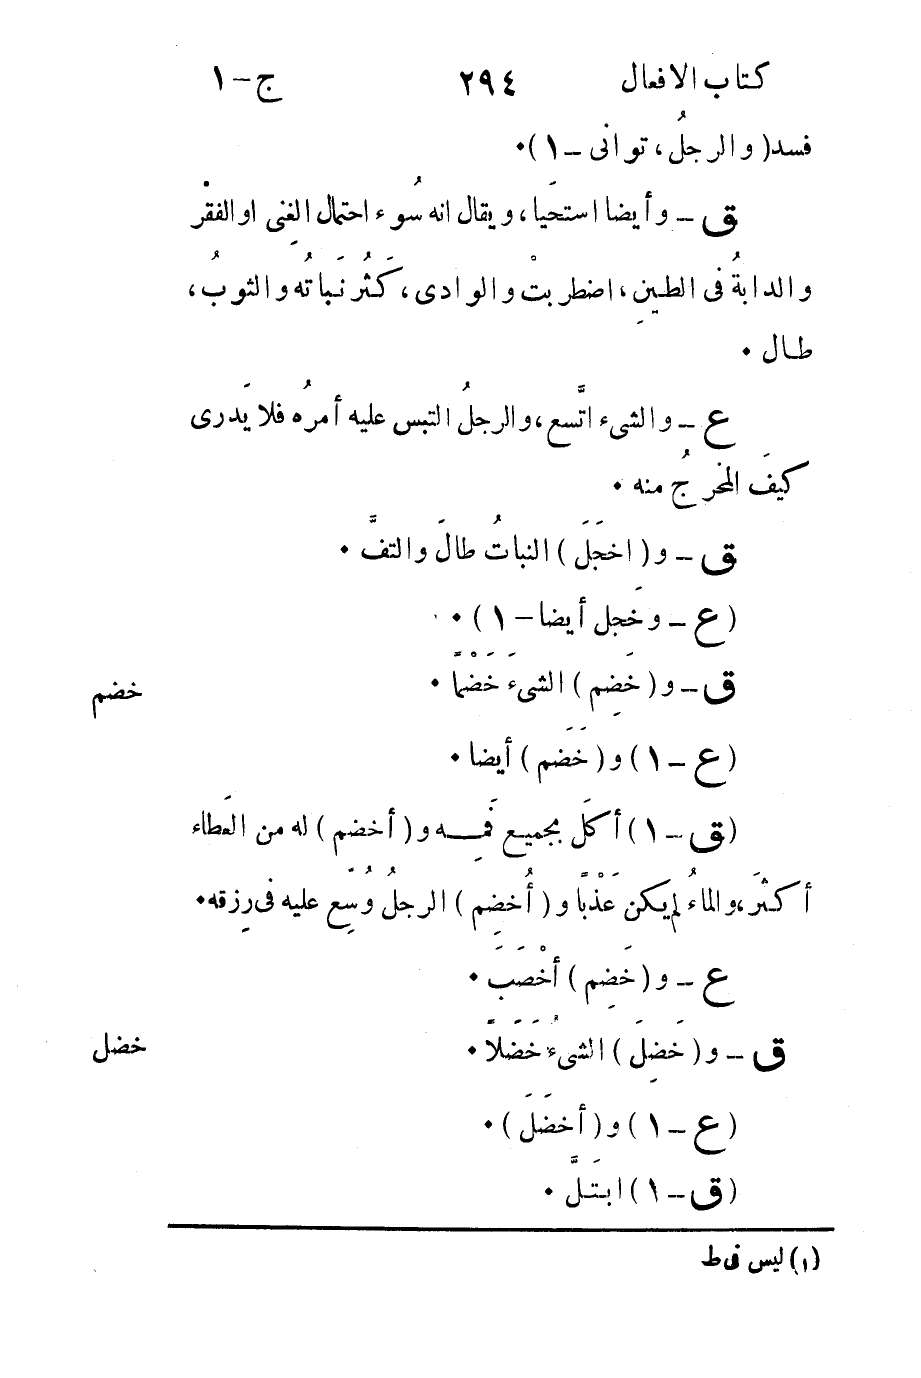 كتاب الافعال ٢٩٤ ج – ١
فسد ( و الرجلُ، توانى – ١ )٠
ق – و أيضا استحَيا، و يقال انه سُوء احتمال الغِنى او الفقْر
و الدابةُ فى الطينِ، اضطربتْ و الوادى، كَثُر نَباتُه و الثوبُ،
طال ٠
ع – و الشىء اتَّسع، و الرجلُ التبس عليه أمرُه فلا يَدرى
كيفَ المخرجُ منه ٠
ق – و ( اخجَلَ ) النباتُ طالَ و التفَّ ٠
( ع – و خَجل أيضا – ١ ) ٠
ق – و ( خَضِم ) الشىءَ خَضْمًا ٠
خضم
( ع – ١ ) و ( خَضَم ) أيضا ٠
( ق – ١ ) أكلَ بجميع فَمِه و ( أخضم ) له من العَطاء
أكثرَ، و الماءُ لم يكن عَذْبًا و ( أُخضِم ) الرجلُ وُسِّع عليه فى رِزقه ٠
ع – و ( خَضِم ) أخْصَبَ ٠
ق – و ( خَضِلَ ) الشىءُ خَضَلاً ٠
خضل
( ع – ١ ) و ( أخضَلَ ) ٠
( ق – ١ ) ابتَلَّ ٠
(١) ليس فى ط